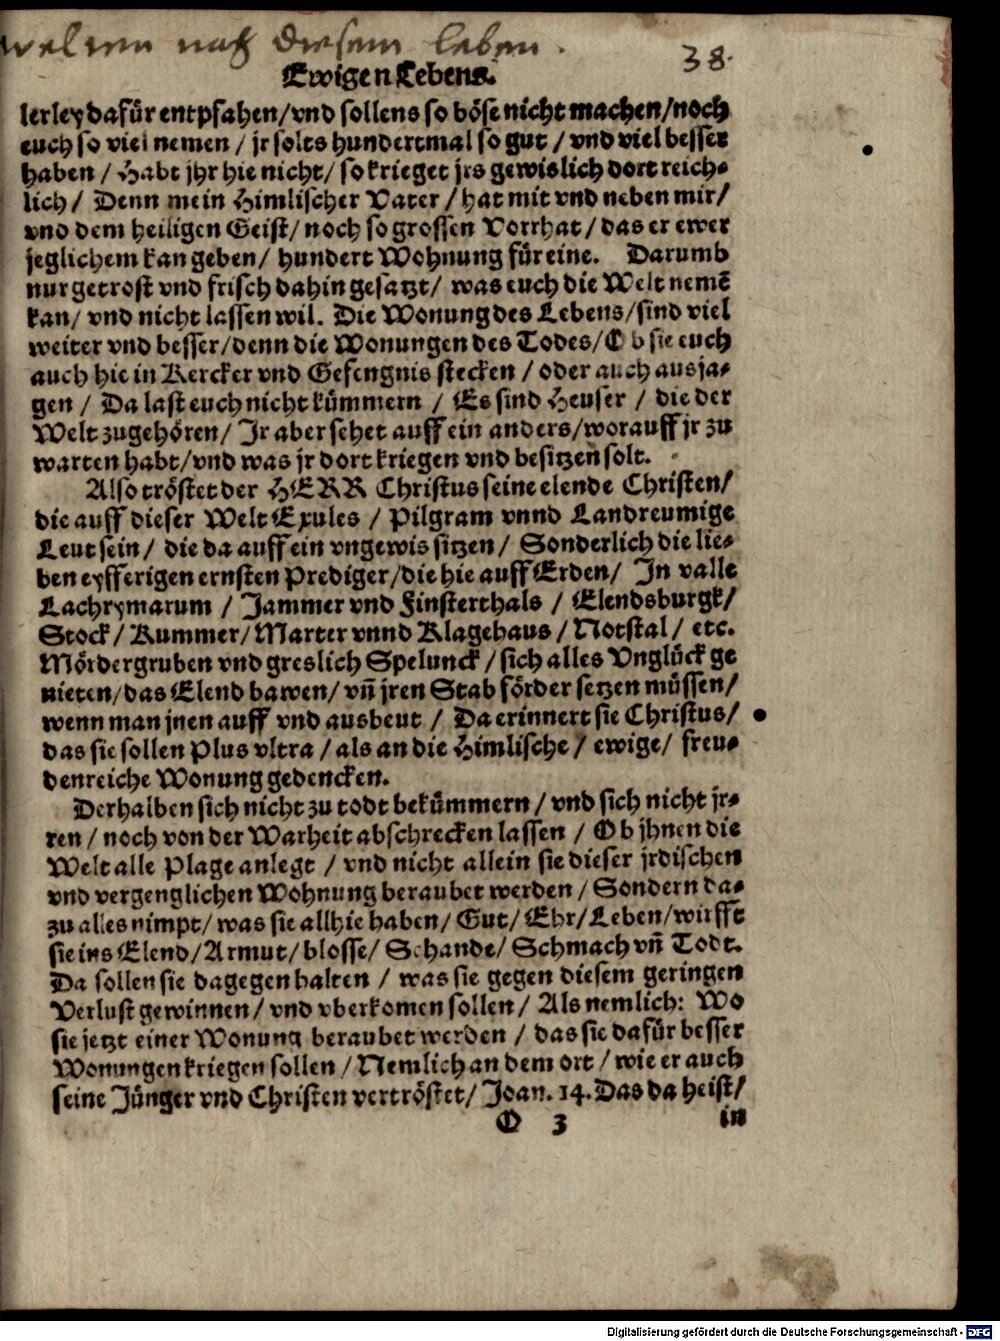 nach diesem leben.
38.
Ewigen Lebens.
lerley dafür entpfahen/vnd sollens so böse nicht machen/noch
euch so viel nemen / jr solts hundertmal so gut / vnd viel besser
haben / Habt jhr hie nicht/ so krieget jrs gewislich dort reich-
lich / Denn mein Himlischer Vater / hat mit vnd neben mir/
vnd dem heiligen Geist/ noch so grossen Vorrhat / das er ewer
jeglichem kan geben/ hundert Wohnung für eine. Darumb
nur getrost vnd frisch dahin gesatzt/ was euch die Welt nemē
kan/ vnd nicht lassen wil. Die Wonung des Lebens/sind viel
weiter vnd besser/denn die Wonungen des Todes/Ob sie euch
auch hie in Kercker vnd Gefengnis stecken / oder auch ausja-
gen / Da last euch nicht kümmern / Es sind Heuser / die der
Welt zugehören/ Jr aber sehet auff ein anders/worauff jr zu
warten habt/vnd was jr dort kriegen vnd besitzen solt.
Also tröstet der HERR Christus seine elende Christen/
die auff dieser Welt Exules / Pilgram vnnd Landreumige
Leut sein/ die da auff ein vngewis sitzen/ Sonderlich die lie-
ben eyfferigen ernsten Prediger/die hie auff Erden/ In valle
Lachrymarum / Jammer vnd Finsterthals / Elendsburgk/
Stock/ Kummer/Marter vnnd Klagehaus/Notstal/ etc.
Mördergruben vnd greslich Spelunck/sich alles Vnglück ge
nieten/das Elend bawen/ vñ jren Stab förder setzen müssen/
wenn man jnen auff vnd ausbeut / Da erinnert sie Christus/
das sie sollen Plus vltra/als an die Himlische/ ewige/ freu-
denreiche Wonung gedencken.
Derhalben sich nicht zu todt bekümmern/vnd sich nicht jr-
ren/noch von der Warheit abschrecken lassen / Ob jhnen die
Welt alle Plage anlegt / vnd nicht allein sie dieser jrdischen
vnd vergenglichen Wohnung beraubet werden/Sondern da-
zu alles nimpt/was sie allhie haben/Gut/Ehr/Leben/wirfft
sie ins Elend/Armut/blosse/Schande/Schmach vñ Todt.
Da sollen sie dagegen halten / was sie gegen diesem geringen
Verlust gewinnen/vnd vberkomen sollen/ Als nemlich: Wo
sie jetzt einer Wonung beraubet werden / das sie dafür besser
Wonungen kriegen sollen/Nemlich an dem ort/wie er auch
seine Jünger vnd Christen vertröstet/ Joan. 14. Das da heist/
O 3 in
Digitalisierung gefördert durch die Deutsche Forschungsgemeinschaft - DFG